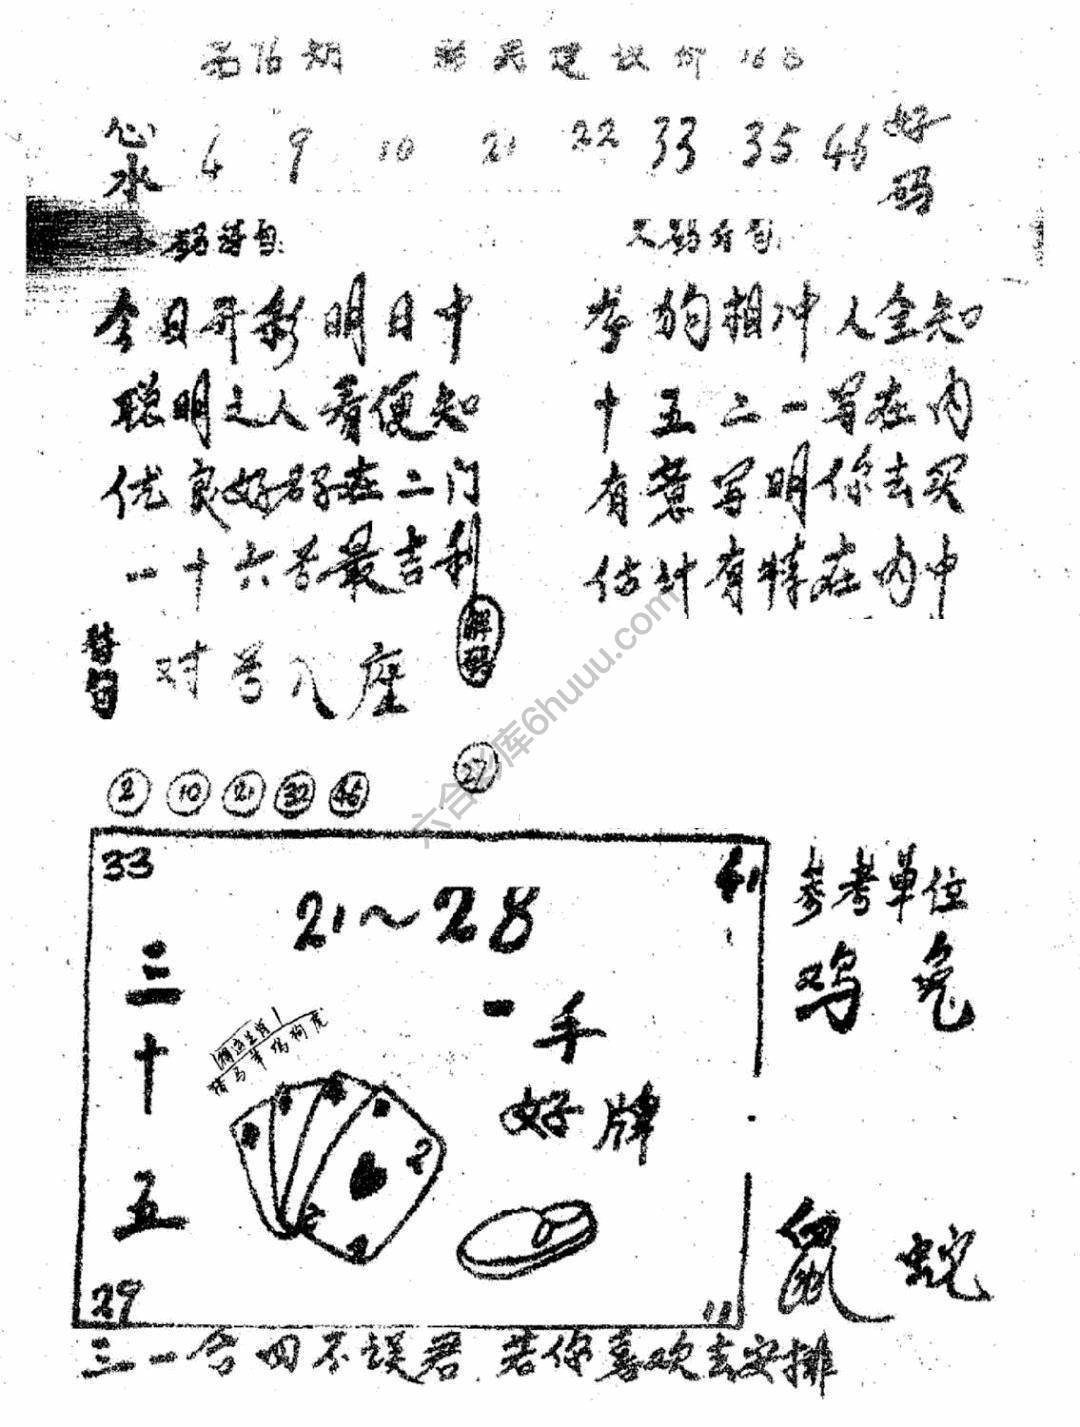 第76期
心水 6 9 10 21 22 33 35 46 好码
今日开彩明日中
聪明之人看便知
优良好码在二门
一十六苦最吉利
狗相冲人全知
十五二一写在内
有意写明你去买
估计有特在内中
特句 对号入座
解码
2 10 21 32 46 27
33 41
21~28
三十五
一手好牌
猪马羊鸡狗虎
29 11
参考单位
鸡 兔
鼠 蛇
三一合四不误君 若你喜欢去安排
六合彩库6huuu.com